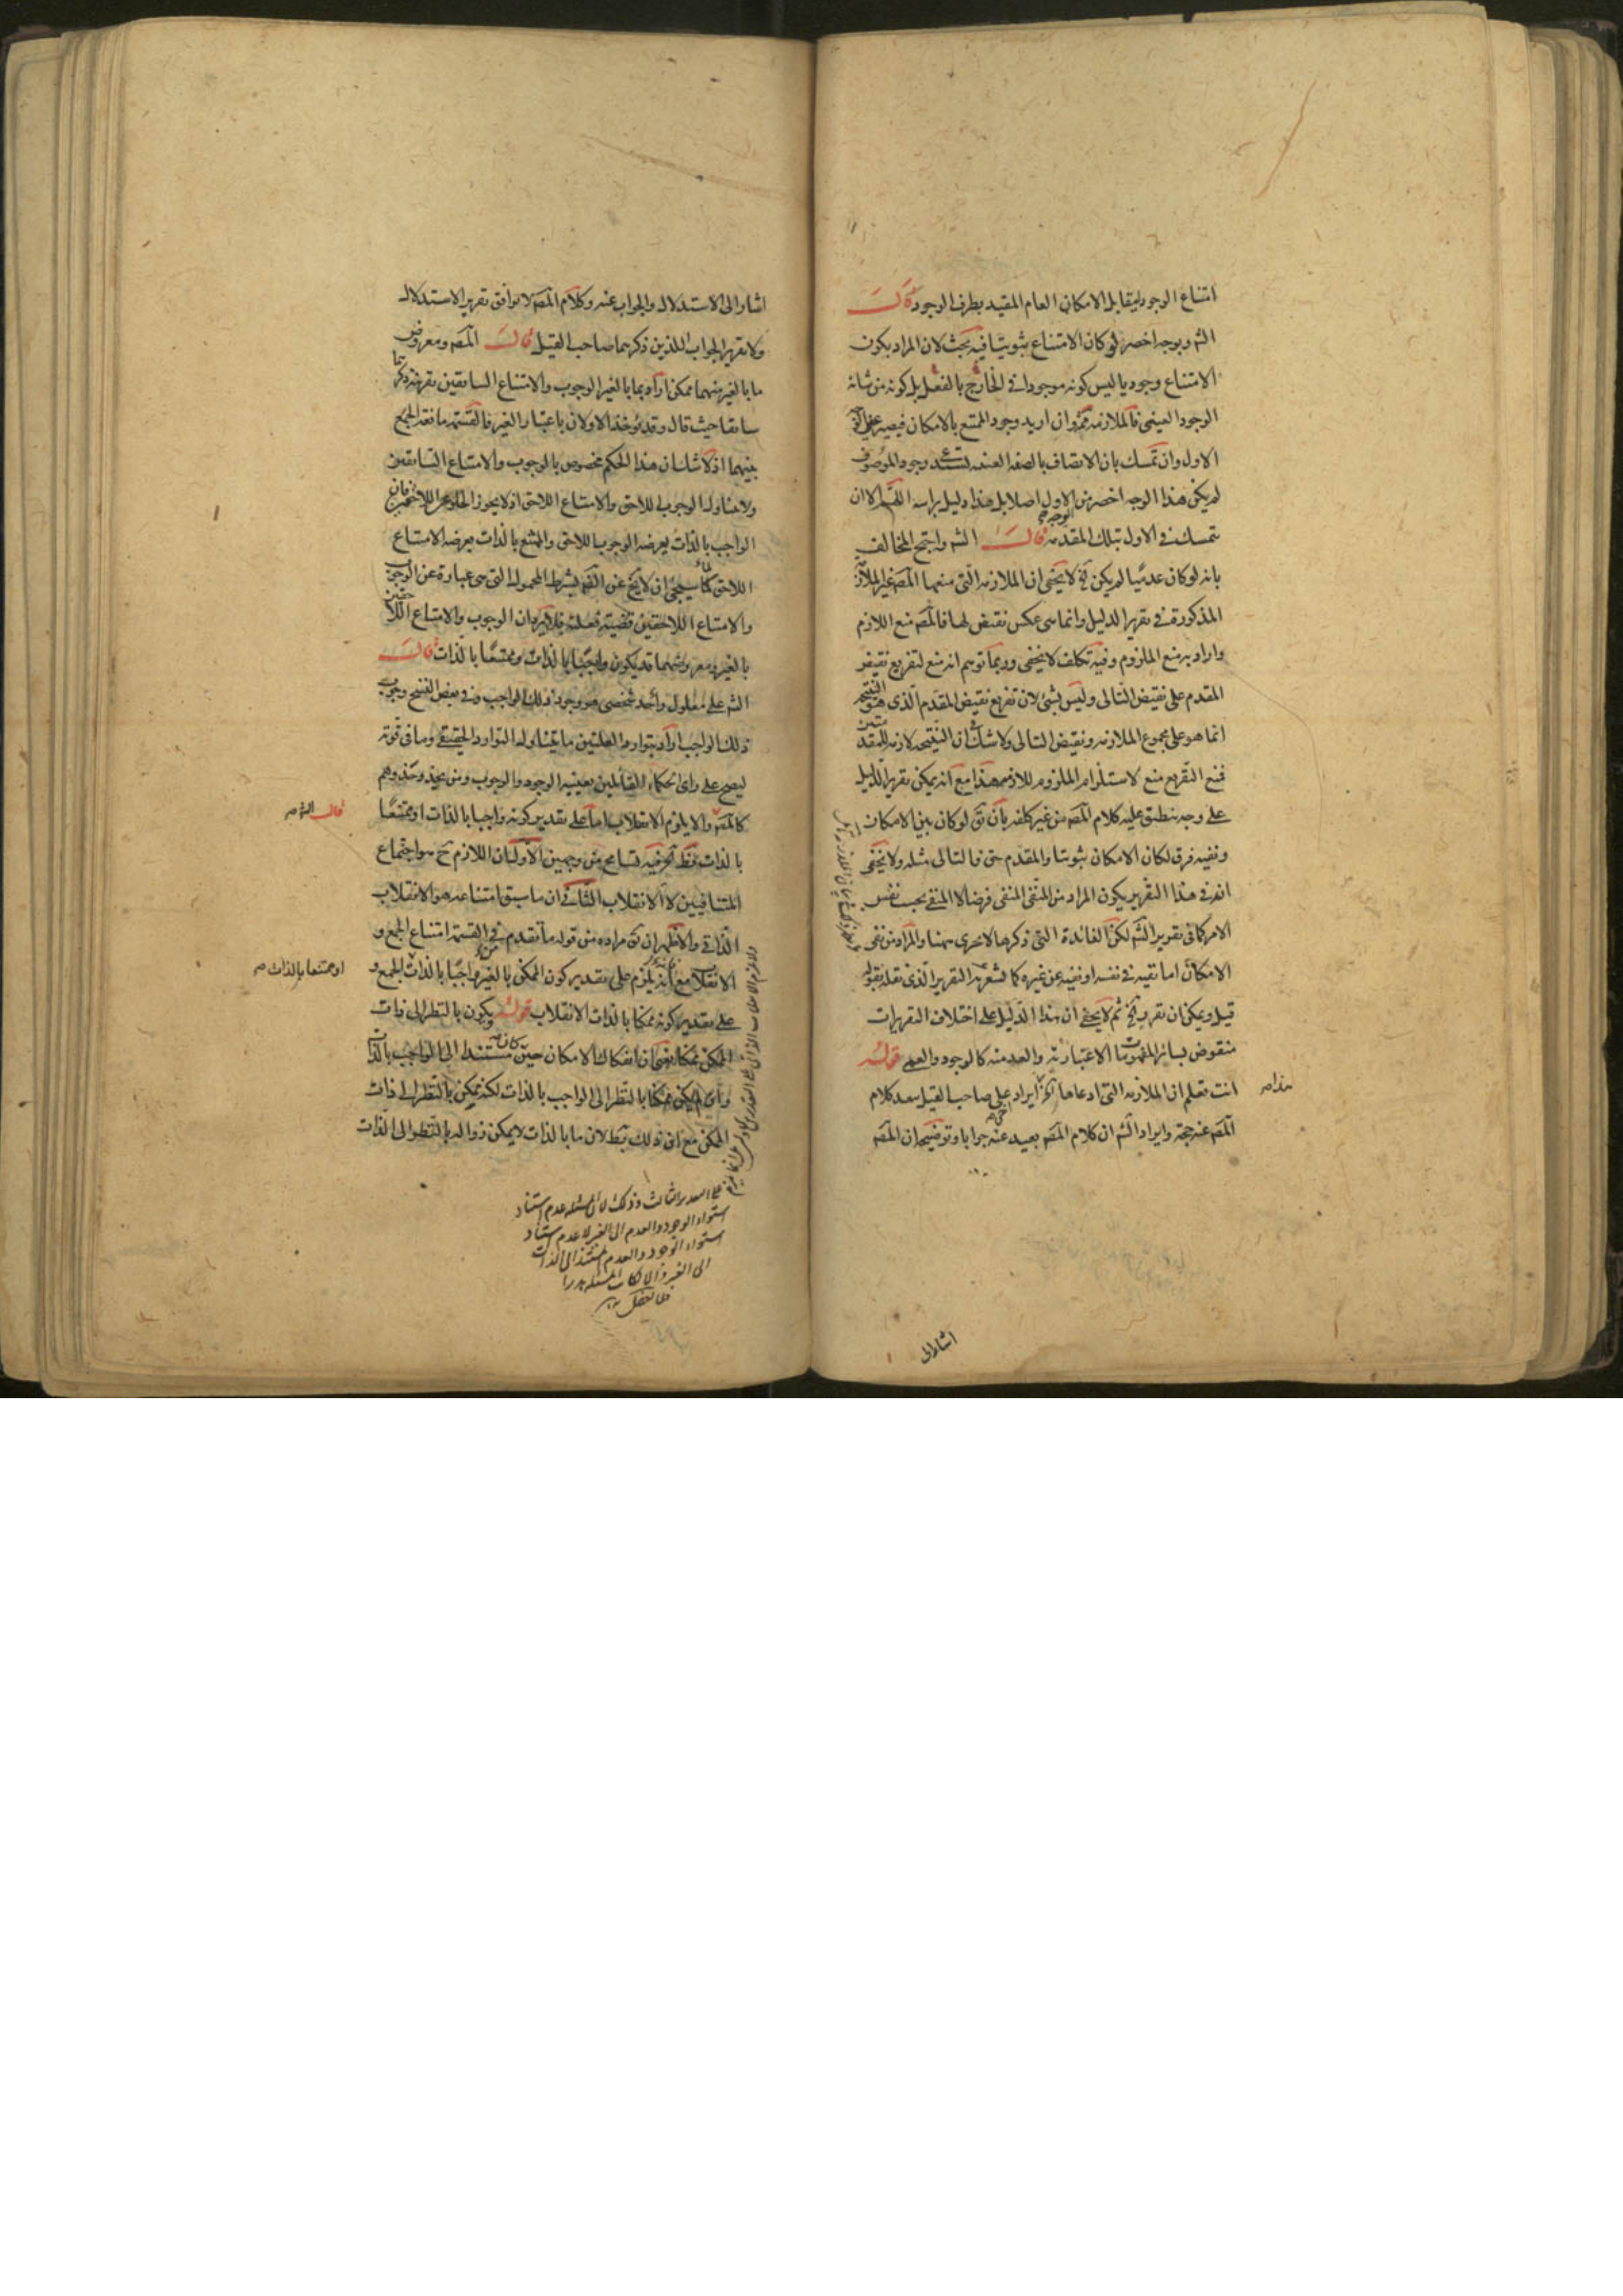 امتناع الوجود ليقابل الامكان العام المقيد بطرف الوجود قال
الش وبوجه اخصر لو كان الامتناع ثبوتيا فيه بحث لان المراد بكون
الامتناع وجوديا ليس كونه موجودا في الخارج بالفعل بل كونه من شانه
الوجود العيني فالملازمة مم وان اريد وجود الممتنع بالامكان فيصير
الاول وان تمسك بان الاتصاف بالصفة العينية يستدعي وجود الموصوف
لم يكن هذا الوجه اخصر من الاول اصلا بل هذا دليل براسه اللهم الا ان
يتمسك في الاول بتلك المقدمة قال الش واحتج المخالف
بانه لو كان عدميا لم يكن الخ لا يخفى ان الملازمة التي منعها المصه غير الملازمة
المذكورة في تقرير الدليل وانما هي عكس نقيض لها فالمصه منع اللازم
واراد به منع الملزوم وفيه تكلف لا يخفى وربما توهم انه منع لتفريع نقيض
المقدم على نقيض التالى وليس بشئ لان تفريع نقيض المقدم الذى هو النتيجة
انما هو على مجموع الملازمة ونقيض التالى ولا شك في ان النتيجة لازمة للمقدمتين
فمنع التفريع منع لاستلزام الملزوم للازمه هذا مع انه يمكن تقرير الدليل
على وجه ينطبق عليه كلام المصه من غير كلفة بان يق لو كان بين الامكان
ونفيه فرق لكان الامكان ثبوتيا والمقدم حق فالتالى مثله ولا يخفى
انه في هذا التقرير يكون المراد من المنفى المنفى فرضا لا المنفي بحسب نفس
الامر كما في تقرير الش لكن الفائدة التى ذكرها لا تجرى ههنا والمراد من نفى
الامكان اما نفيه في نفسه او نفيه عن غيره كما يشعر به التقرير الذى نقله بقوله
قيل ويمكن ان يقرر الخ ثم لا يخفى ان هذا الدليل على اختلاف التقريرات
منقوض بسائر المفهومات الاعتبارية والعدمية كالوجود والعمى قوله
انت تعلم ان الملازمة التى ادعاها الخ ايراد على صاحب القيل بعد كلام
المصه عنه جهة وايراد الش ان كلام المصه بعيد عنه جوابا وتوضيحه ان المصه
هذا صه
اشار الى
اشار الى الاستدلال والجواب عنه وكلام المصه لا يوافق تقرير الاستدلال
ولا تقرير الجواب اللذين ذكرهما صاحب القيل قال المصه ومعروض
ما بالغير منهما ممكن اراد بما بالغير الوجوب والامتناع السابقين بقرينة ذكرهما
سابقا حيث قال وقد يؤخذ الاولان باعتبار الغير فالقسمة مانعة الجمع
بينهما اذ لا شك ان هذا الحكم مخصوص بالوجوب والامتناع السابقين
ولا يتناول الوجوب اللاحق والامتناع اللاحق اذ لا يجوز الخلو عن اللاحقين فان
الواجب بالذات يعرضه الوجوب اللاحق والممتنع بالذات يعرضه الامتناع
اللاحق كما سيجئ ان لا يخ عن القضية بشرط المحمول التى هى عبارة عن الوجوب
والامتناع اللاحقين قضية فعلية فلا يرد ان الوجوب والامتناع اللاحقين
بالغير ومعروضهما قد يكون واجبا بالذات وممتنعا بالذات قال
الش على معلول واحد شخصى هو وجود ذلك الواجب وفي بعض النسخ وجوب
ذلك الواجب اراد بتوارد العلتين ما يتناول التوارد الحقيقى وما في قوته
ليصح على راى الحكماء القائلين بعينية الوجود والوجوب ومن يحذو حذوهم
كالمصه والا يلزم الانقلاب اما على تقدير كونه واجبا بالذات او ممتنعا
بالذات فقط الخ فيه تسامح من وجهين الاول ان اللازم ح هو اجتماع
المتنافيين لا الانقلاب الثانى ان ما سبق امتناعه هو الانقلاب
الذاتى والاظهر ان يق مراده من قوله ما تقدم في القسمة امتناع الجمع و
الانقلاب مع انه يلزم على تقدير كون الممكن بالغير واجبا بالذات الجمع و
على تقدير كونه ممكنا بالذات الانقلاب قوله ويكون بالنظر الى ذات
الممكن ممكنا يعنى ان انفكاك الامكان حين كان مستندا الى الواجب بالذات
وان لم يكن ممكنا بالنظر الى الواجب بالذات لكنه ممكن بالنظر الى ذات
الممكن مع ان ذلك بط لان ما بالذات لا يمكن زواله بالنظر الى الذات
قال الش صه
او ممتنعا بالذات صه
على التقدير الثالث وذلك لان المستلة عدم استناد
استواء الوجود والعدم الى الغير لا عدم استناد
استواء الوجود والعدم المستند الى الذات
الى الغير